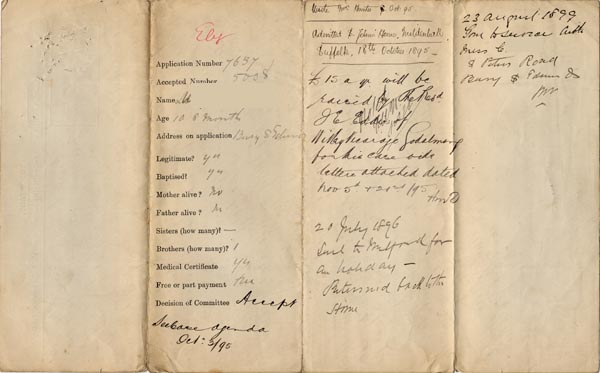 Ely
Application Number 7637
Accepted Number 5038
Name
Age 10 8 Month
Address on application Bury S Edmunds
Legitimate? yes
Baptised? yes
Mother alive? No
Father alive? No
Sisters (how many)? —
Brothers (how many)? 1
Medical Certificate yes
Free or part payment Free
Decision of Committee Accept
See Case agenda
Oct: 3/95
Write Mrs 8 Oct 95
Admitted St John's Home, Mildenhall
Suffolk, 18th October 1895 —
£15 a yr will be
by The Revd
J E Eddis of
Witley Vicarage Godalming
for his care vide
letters attached dated
Nov 5th & 22nd /95
20 July 1896
Sent to Milford for
an holiday —
Returned back to the
Home
23 August 1899
Gone to Service with
Miss C.
8 Peters Road
Bury S Edmunds